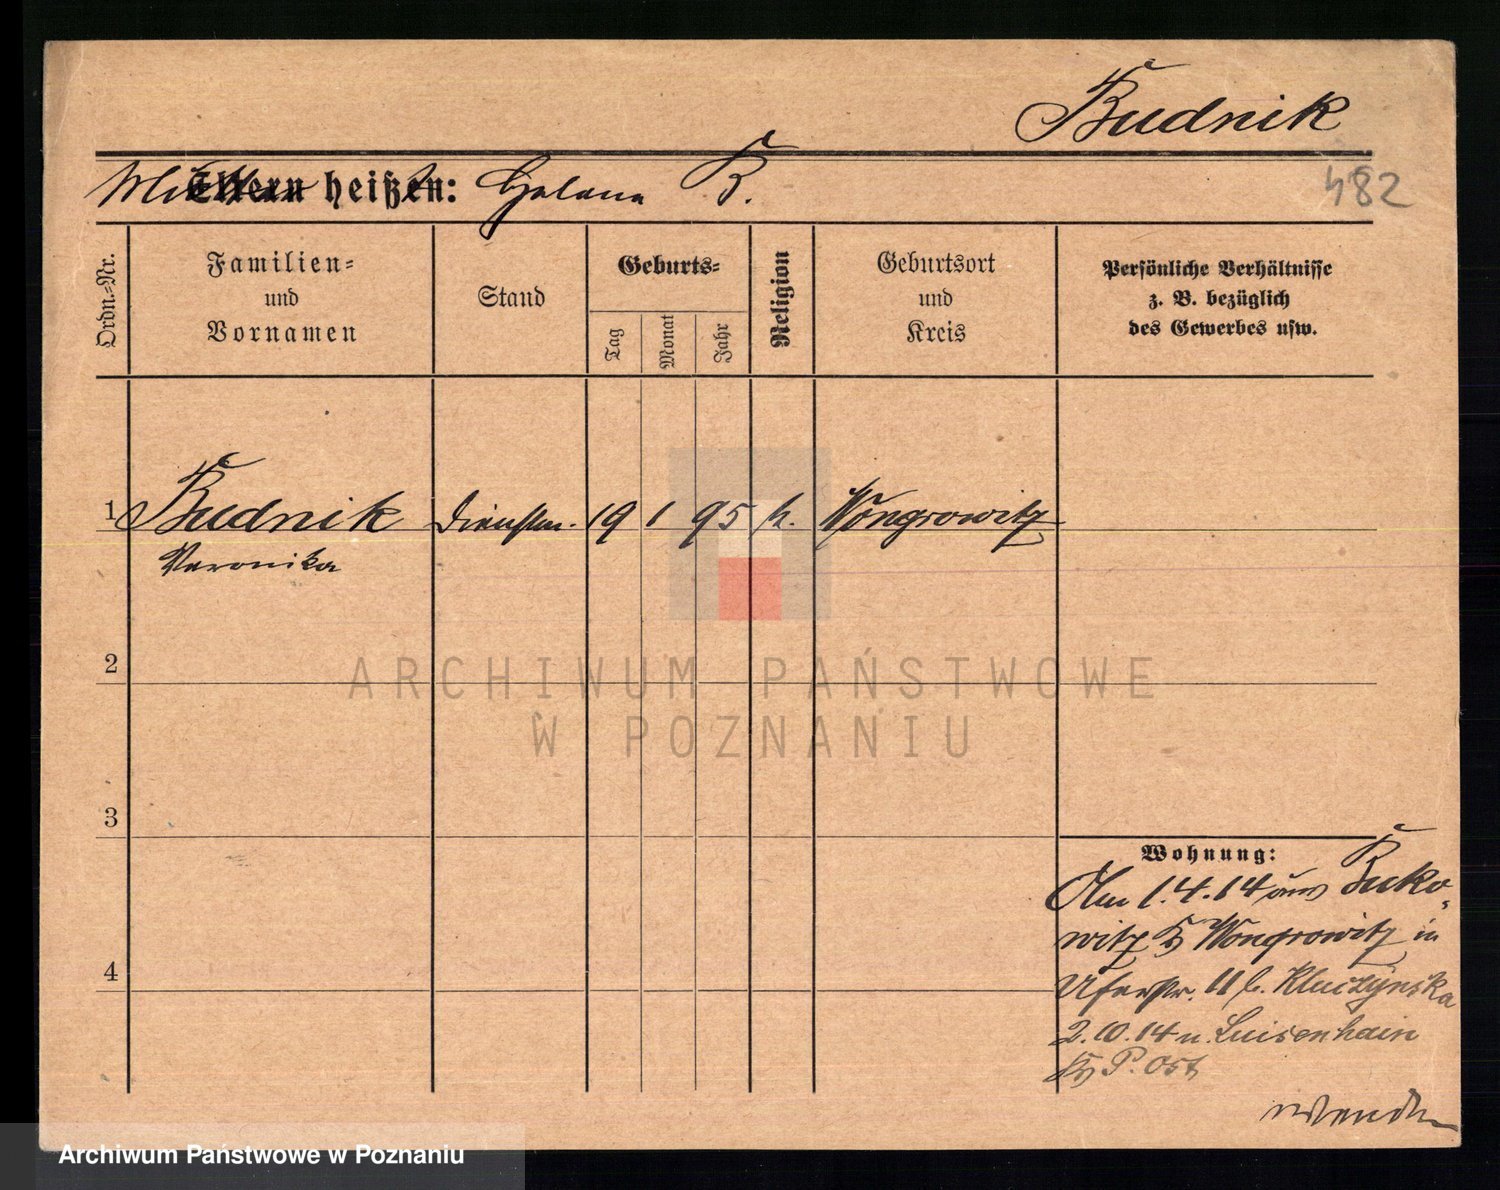 Budnik
Mutter heißt: Helena B.
482
Ordn.-Nr.
Familien-
und
Vornamen
Stand
Geburts-
Tag
Monat
Jahr
Religion
Geburtsort
und
Kreis
Persönliche Verhältnisse
z. B. bezüglich
des Gewerbes usw.
1 Budnik Dienstm. 19 1 95 k. Wongrowitz
Veronika
2
3
4
Wohnung:
Am 1.4.14 aus Buko-
witz Kr Wongrowitz in
Uferstr. 11 b. Kluczynska
2.10.14 n. Luisenhain
Kr P. Ost
wenden
ARCHIWUM PAŃSTWOWE
W POZNANIU
Archiwum Państwowe w Poznaniu